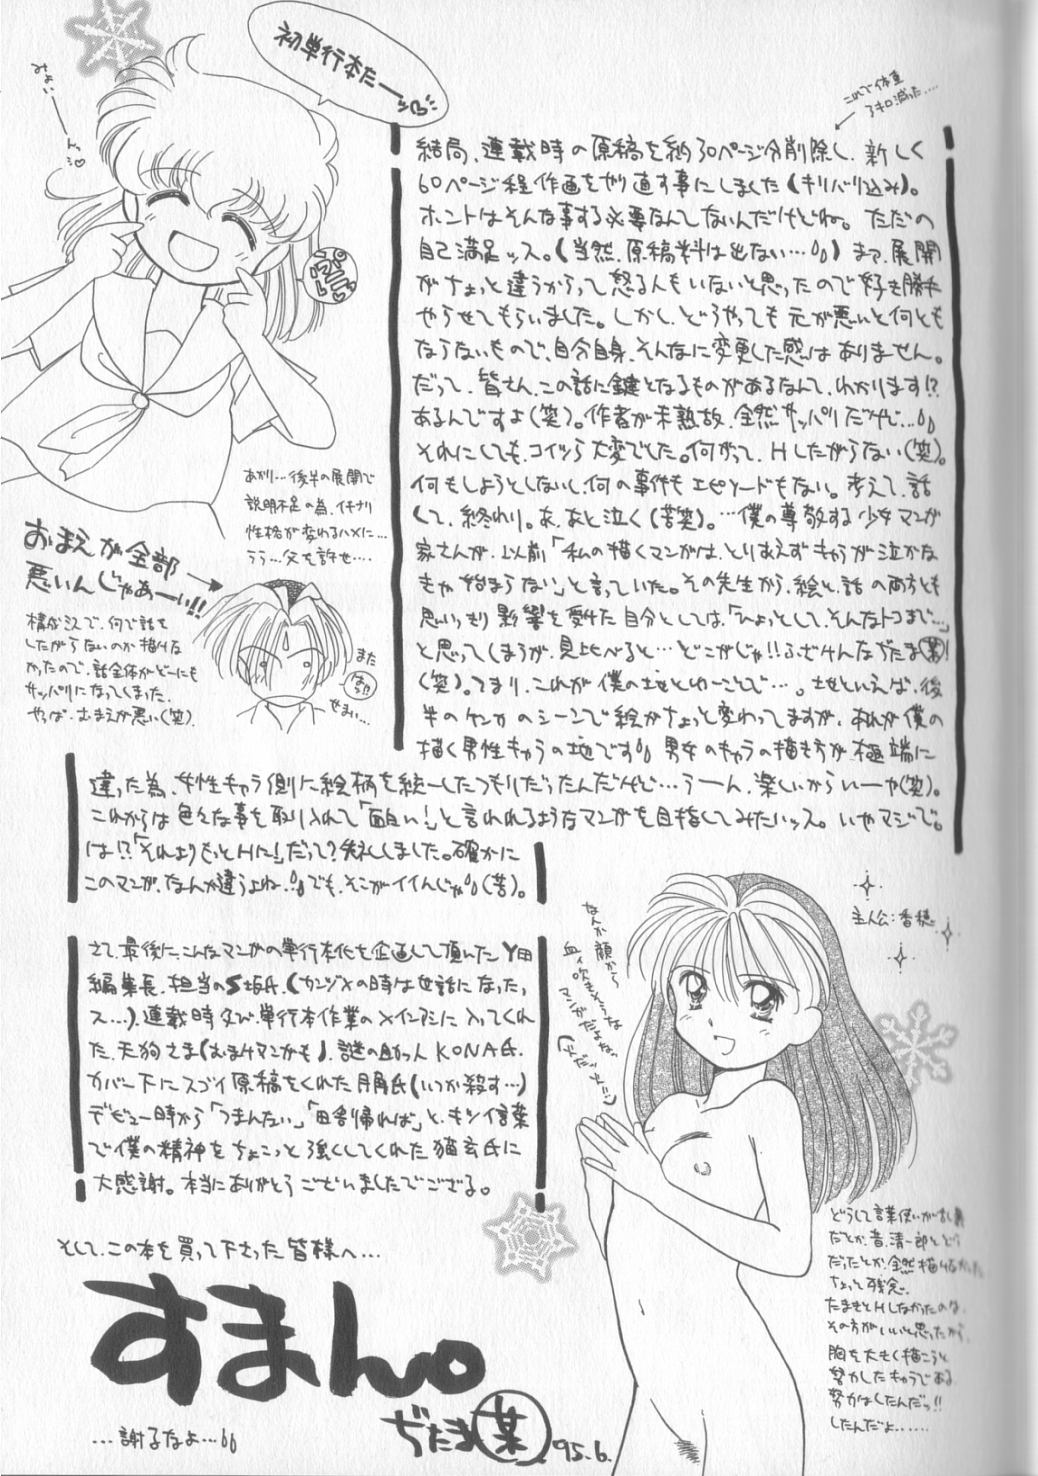 初単行本だーー
これで体重
3キロ減った……
結局、連載時の原稿を約30ページ分削除し、新しく
60ページ程作画をやり直す事にしました(キリバリ込み)。
ホントはそんな事する必要なんてないんだけどね。ただの
自己満足ッス。(当然、原稿料は出ない…)まァ、展開
がちょっと違うからって怒る人もいないと思ったので好き勝手
やらせてもらいました。しかし、どうやっても元が悪いと何とも
ならないもので、自分自身、そんなに変更した感はありません。
だって、皆さん、この話に鍵となるものがあるなんて、わかります!?
あるんですよ(笑)。作者が未熟故、全然サッパリだけど…
それにしても、コイツら大変でした。何がって、Hしたがらない(笑)。
何もしようとしないし、何の事件もエピソードもない。考えて、話
して、終わり。あ、あと泣く(苦笑)。…僕の尊敬する少女マンガ
家さんが、以前「私の描くマンガは、とりあえずキャラが泣かな
きゃ始まらない」と言っていた。その先生から、絵と、話の両方とも
思いっきり影響を受けた自分としては、「ひょっとして、そんなトコまで…」
と思ってしまうが、見比べると…どこがじゃ!!ふざけんなぢたま(某)!
(笑)。つまり、これが僕の地とゆーことで…。地といえば、後
半のケンカのシーンで絵がちょっと変わってますが、あれが僕の
描く男性キャラの地です 男女のキャラの描き方が極端に
違った為、女性キャラ側に絵柄を統一したつもりだったんだけど…うーん、楽しいからいーや(笑)。
これからは色々な事を取り入れて「面白い!」と言われるようなマンガを目指してみたいッス。いやマジで。
は!?「それよりもっとHに!」だって?失礼しました。確かに
このマンガ、なんか違うよね、でも、そこがイイんじゃ(苦)。
あかり…後半の展開で
説明不足の為、イキナリ
性格が変わるハメに…
うう…父を許せ……
おまえが全部
悪いんじゃあーい!!
構成ミスで、何で話を
したがらないのか描けな
かったので、話全体がどーにも
サッパリになってしまった。
やっぱ、おまえが悪い(笑)。
また
せまい…
さて、最後に、こんなマンガの単行本化を企画して頂いたY田
編集長、担当のS坂氏、(カンヅメの時は世話になったっ
ス…)、連載時及び、単行本作業のメインアシに入ってくれ
た、天狗さま(おまけマンガも)、謎の助っ人KONA氏、
カバー下にスゴイ原稿をくれた月角氏(いつか殺す…)
デビュー時から「つまんない」「田舎帰れば」と、キツイ言葉
で僕の精神をちょこっと強くしてくれた猫玄氏に
大感謝。本当にありがとうございましたでござる。
主人公:香穂
なんか顔から
血ィ吹きそうな
マンガだよな…
どうして言葉使いが
だとか、昔、清一郎とどう
だったとか、全然描けなかった
ちょっと残念。
たまきとHしなかったのは、
その方がいいと思ったから、
胸を大きく描こうと
努力したキャラである
努力はしたんだっ!!
したんだよ……
そして、この本を買って下さった皆様へ…
すまん。
…謝るなよ…
ぢたま(某)
'95.6.